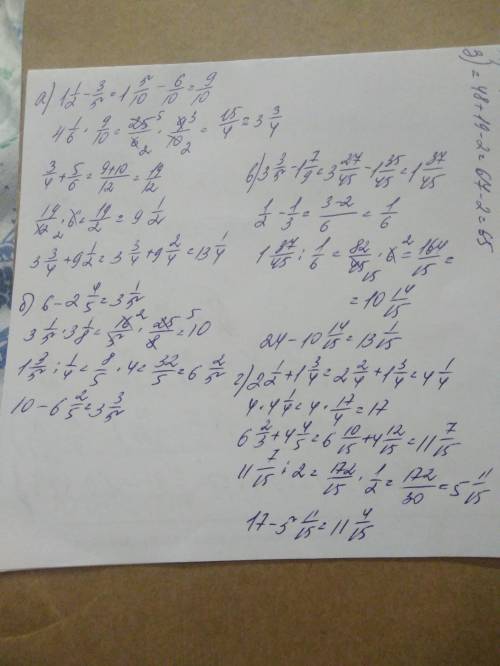 а) 1 1/2 - 3/5 = 1 5/10 - 6/10 = 9/10
4 1/6 · 9/10 = 25/6 · 9/10 = 15/4 = 3 3/4
3/4 + 5/6 = (9+10)/12 = 19/12
19/12 · 6 = 19/2 = 9 1/2
3 3/4 + 9 1/2 = 3 3/4 + 9 2/4 = 13 1/4
б) 6 - 2 4/5 = 3 1/5
3 1/5 · 3 1/8 = 16/5 · 25/8 = 10
1 3/5 : 1/4 = 8/5 · 4 = 32/5 = 6 2/5
10 - 6 2/5 = 3 3/5
в) 3 3/5 - 1 7/9 = 3 27/45 - 1 35/45 = 1 37/45
1/2 - 1/3 = (3-2)/6 = 1/6
1 37/45 : 1/6 = 82/45 · 6 = 164/15 =
= 10 14/15
24 - 10 14/15 = 13 1/15
г) 2 1/2 + 1 3/4 = 2 2/4 + 1 3/4 = 4 1/4
4 · 4 1/4 = 4 · 17/4 = 17
6 2/3 + 4 4/5 = 6 10/15 + 4 12/15 = 11 7/15
11 7/15 : 2 = 172/15 · 1/2 = 172/30 = 5 11/15
17 - 5 11/15 = 11 4/15
д) = 48 + 19 - 2 = 67 - 2 = 65